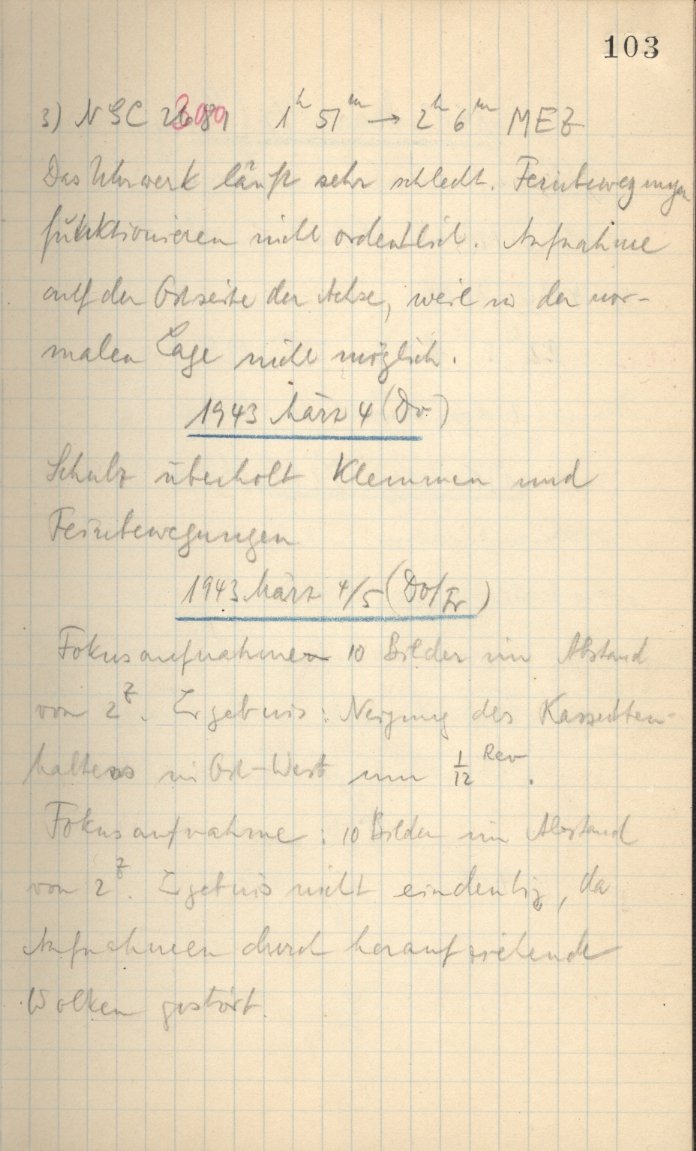 103
3) NGC 1h 51m → 2h 6m MEZ
Das Uhrwerk läuft sehr schlecht. Feinbewegungen
funktionieren nicht ordentlich. Aufnahme
auf der Ostseite der Achse, weil in der nor-
malen Lage nicht möglich.
1943 März 4 (Do)
Schulz überholt Klemmen und
Feinbewegungen
1943 März 4/5 (Do/Fr)
Fokusaufnahmen 10 Bilder im Abstand
von 2z. Ergebnis: Neigung des Kassetten-
halters in Ost-West um 1/12 Rev.
Fokusaufnahme: 10 Bilder im Abstand
von 2z. Ergebnis nicht eindeutig, da
Aufnahmen durch heraufziehende
Wolken gestört.